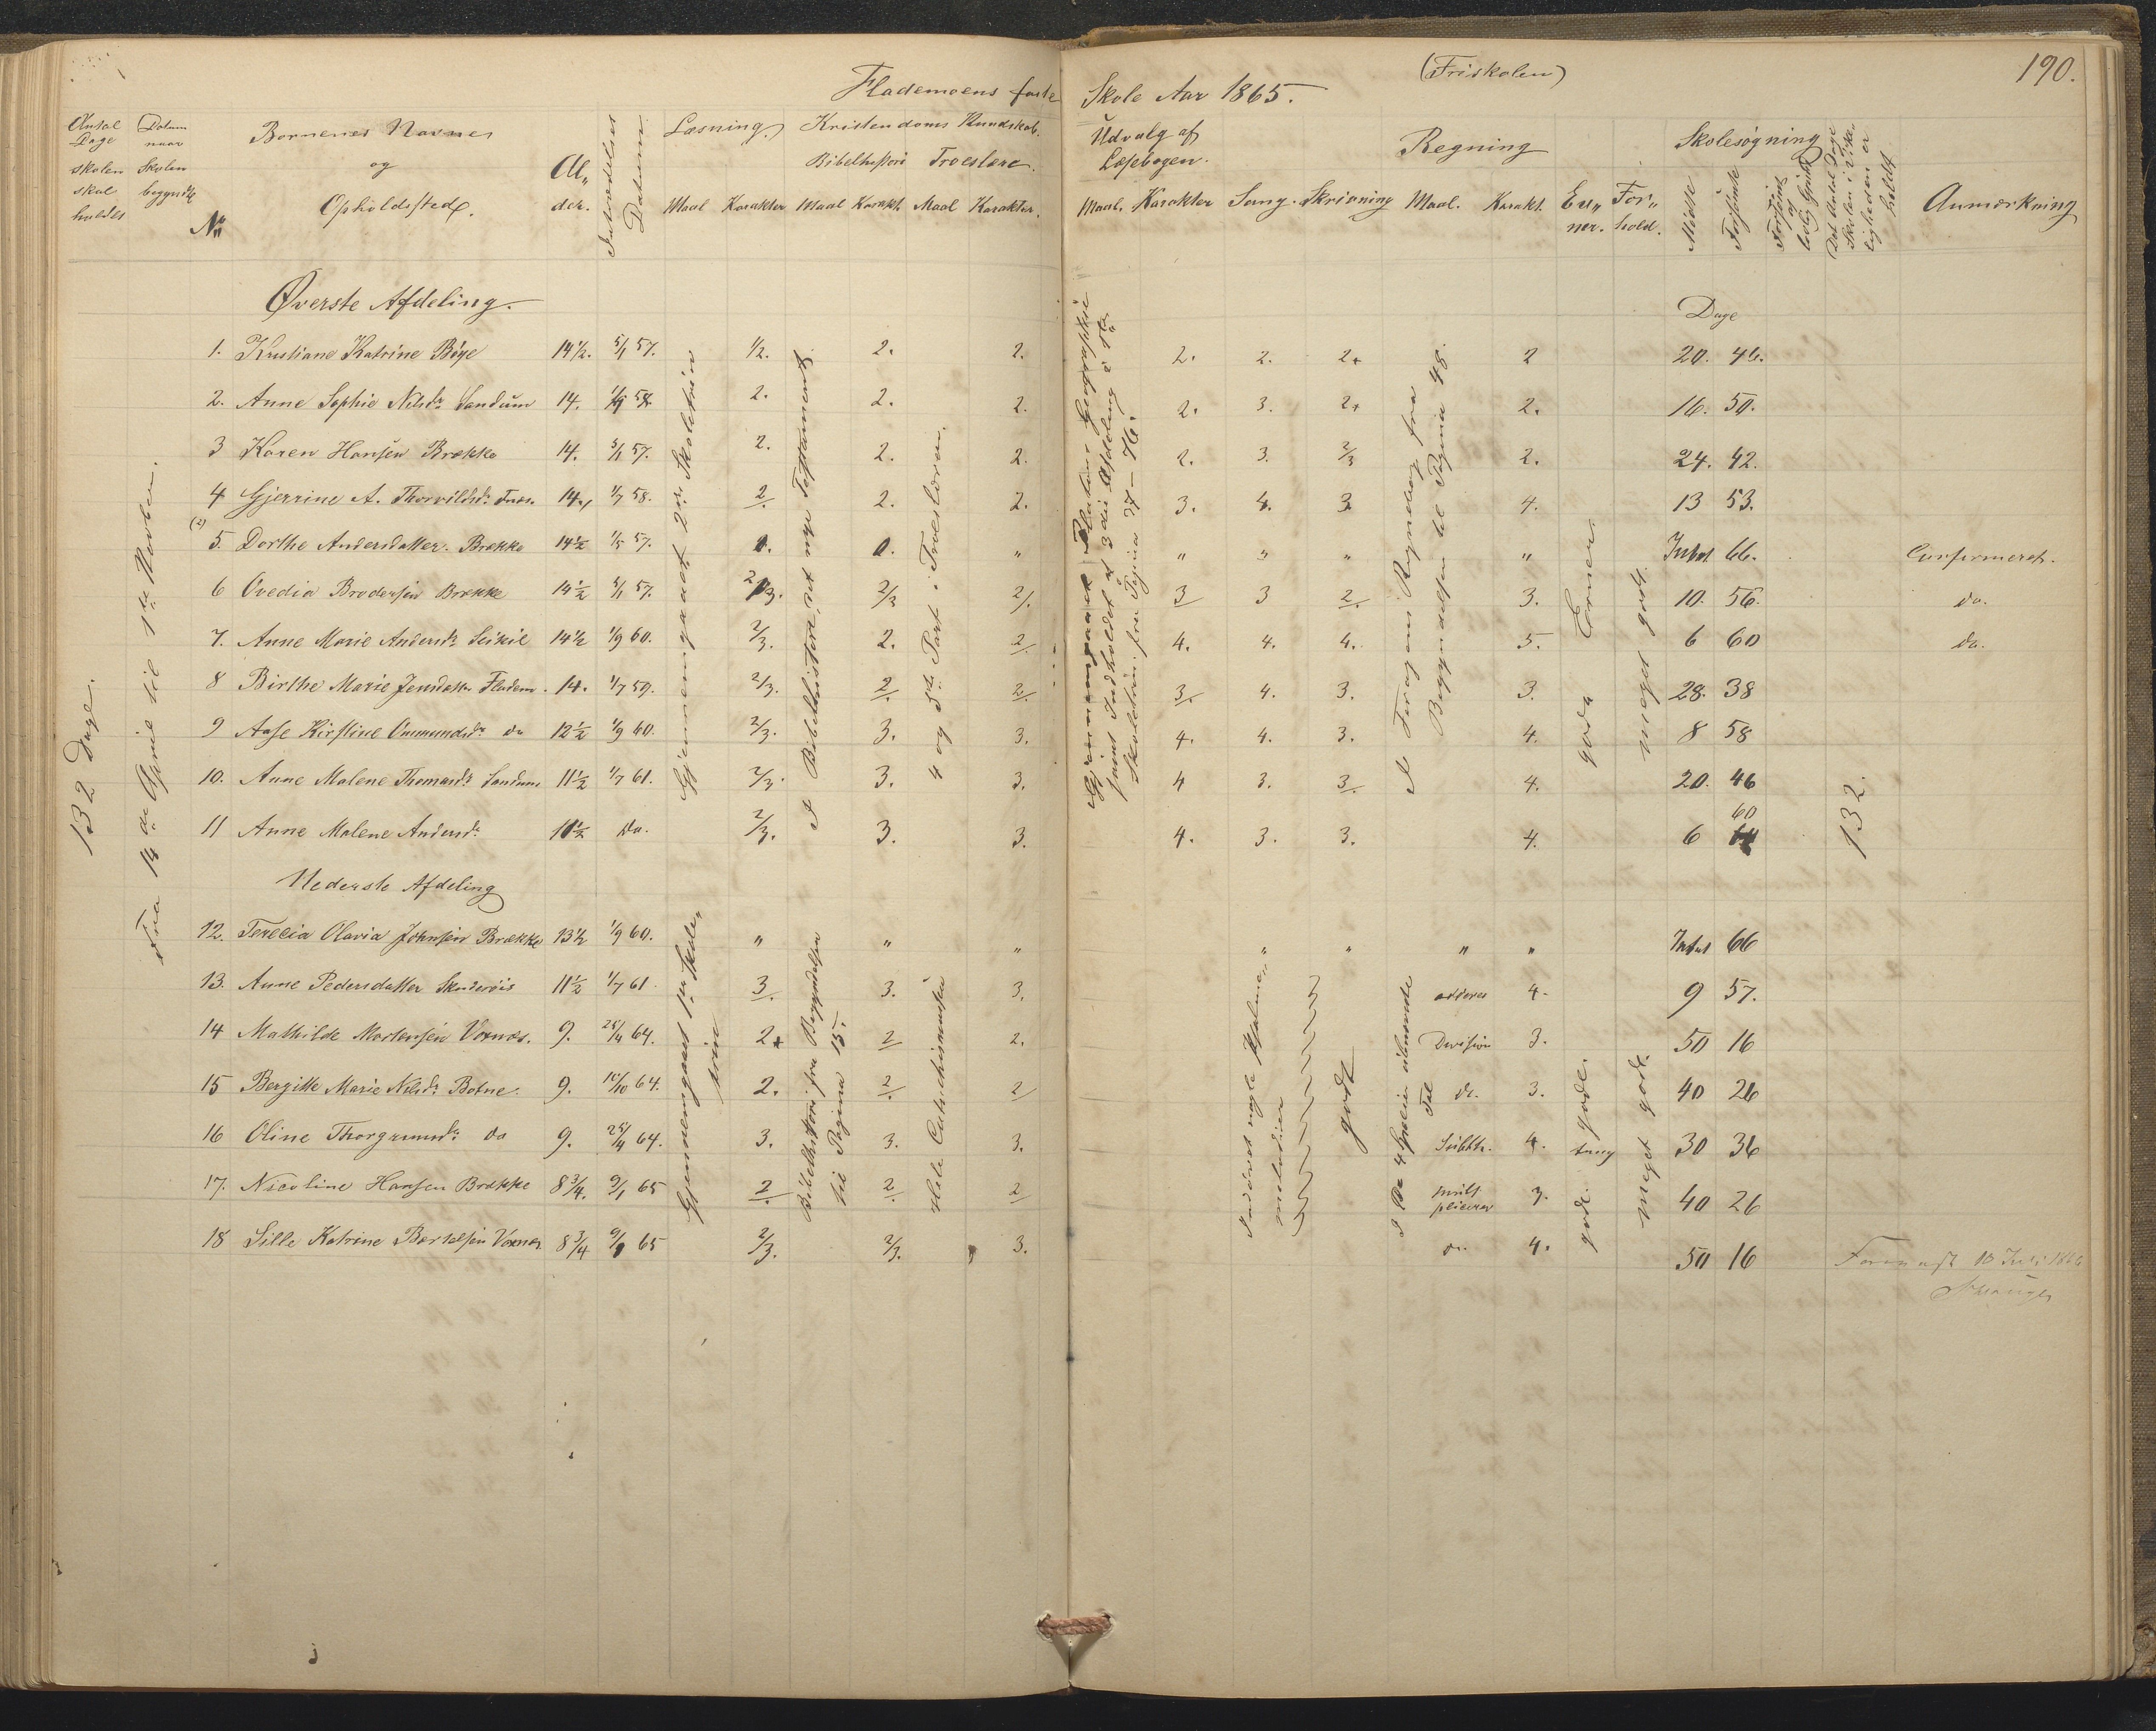 Flademoens faste Skole Aar 1865. (Friskolen) 190.
Antal Dage skolen skal holdes
Datum naar Skolen begyndte
No
Børnenes Navne og Opholdssted.
Alder.
Indtrædelses Datum
Læsning. Maal Karakter
Kristendoms Kundskab.
Bibelhistori Maal Karakt.
Troeslære. Maal Karakter.
Udvalg af Læsebogen. Maal. Karakter
Sang. Skrivning
Regning Maal. Karakt.
Evner. Forhold.
Skolesøgning Mødte Forsømte
Det Antal Dage Skolen i Virkeligheden er holdt
Anmærkning
132 Dage.
Fra 18de April til 1ste Novbr.
Øverste Afdeling.
Dage
1. Kristiane Katrine Bøge 14 1/2. 5/1 57. 1/2. 2. 2. 2. 2. 2+ 2 20. 46.
2. Anne Sophie Nilsdr Sandum 14. 58. 2. 2. 2. 2. 3. 2+ 2. 16. 50.
3 Karen Hansen Brække 14. 5/1 57. 2. 2. 2. 2. 3. 2/3 2. 24. 42.
4 Gjerrine A. Thorvildsdr 14. 1/7 58. 2. 2. 2. 3. 4. 3. 4. 13 53.
(2) 5. Dorthe Andersdatter Brække 14 1/2 1/5 57. 0. 0. " " " " " Intet 66. Confirmeret.
6 Ovedia Brodersen Brække 14 1/2 5/1 57. 2/3. 2/3 2/. 3 3 2. 3. 10. 56. do.
7. Anne Marie Andersdr 14 1/2 1/9 60. 2/3. 2. 2 4. 4. 4. 5. 6 60 do.
8 Birthe Marie Jensdatter Fladem. 14. 1/7 59. 2/3. 2. 2 3. 4. 3. 3. 28. 38
9 Aase Kirstine Ommundsdr do 12 1/2 1/9 60. 2/3. 3. 3. 4. 4. 3. 4. 8 58
10. Anne Malene Thomasdr Sandum 11 1/2 1/7 61. 2/3. 3. 3. 4 3. 3. 4. 20. 46
11 Anne Malene Andersdr 10 1/2 Do. 2/3. 3. 3. 4. 3. 3. 4. 6 60
Gjennemgaaet 2det Skoletrin
I Bibelhistorie, det nye Testamente
4 og 5te Part i Troeslæren.
Gjennemgaaet Natur Geographie samt Indholdet af 3die Afdeling a 1ste Skoletrin fra Pagina 27–76.
I Regnebog fra Begyndelsen til Pagina 48.
gode Evner.
meget godt.
132.
Nederste Afdeling
12. Terecia Olavia Johnsen Brække 13 1/2 1/9 60. " " " " " " " Intet 66
13. Anne Pedersdatter 11 1/2 1/7 61. 3. 3. 3. adderes 4. 9 57.
14 Mathilde Mortensen Voxnæs. 9. 25/4 64. 2+ 2 2. Division 3. 50 16
15 Bergitte Marie Nilsdr Botne. 9. 10/10 64. 2. 2. 2 do. 3. 40 26
16 Oline Thorgrimsdr do 9. 25/4 64. 3. 3. 3. Subtr. 4. tung 30 36
17. Nicoline Hansen Brække 8 3/4. 9/1 65 2. 2. 2 multpliceres 3. 40 26
18 Sille Katrine Bertelsen Voxnæs 8 3/4 9/1 65 2/3. 2/3. 3. do. 4. 50 16
Gjennemgaaet 1ste Skoletrin
Bibelhistori fra Begyndelsen til Pagina 15.
Hele Catechismusen
Indøvet nogle Psalmemelodier
godt
I De 4 Species
gode.
gode.
meget godt.
1866